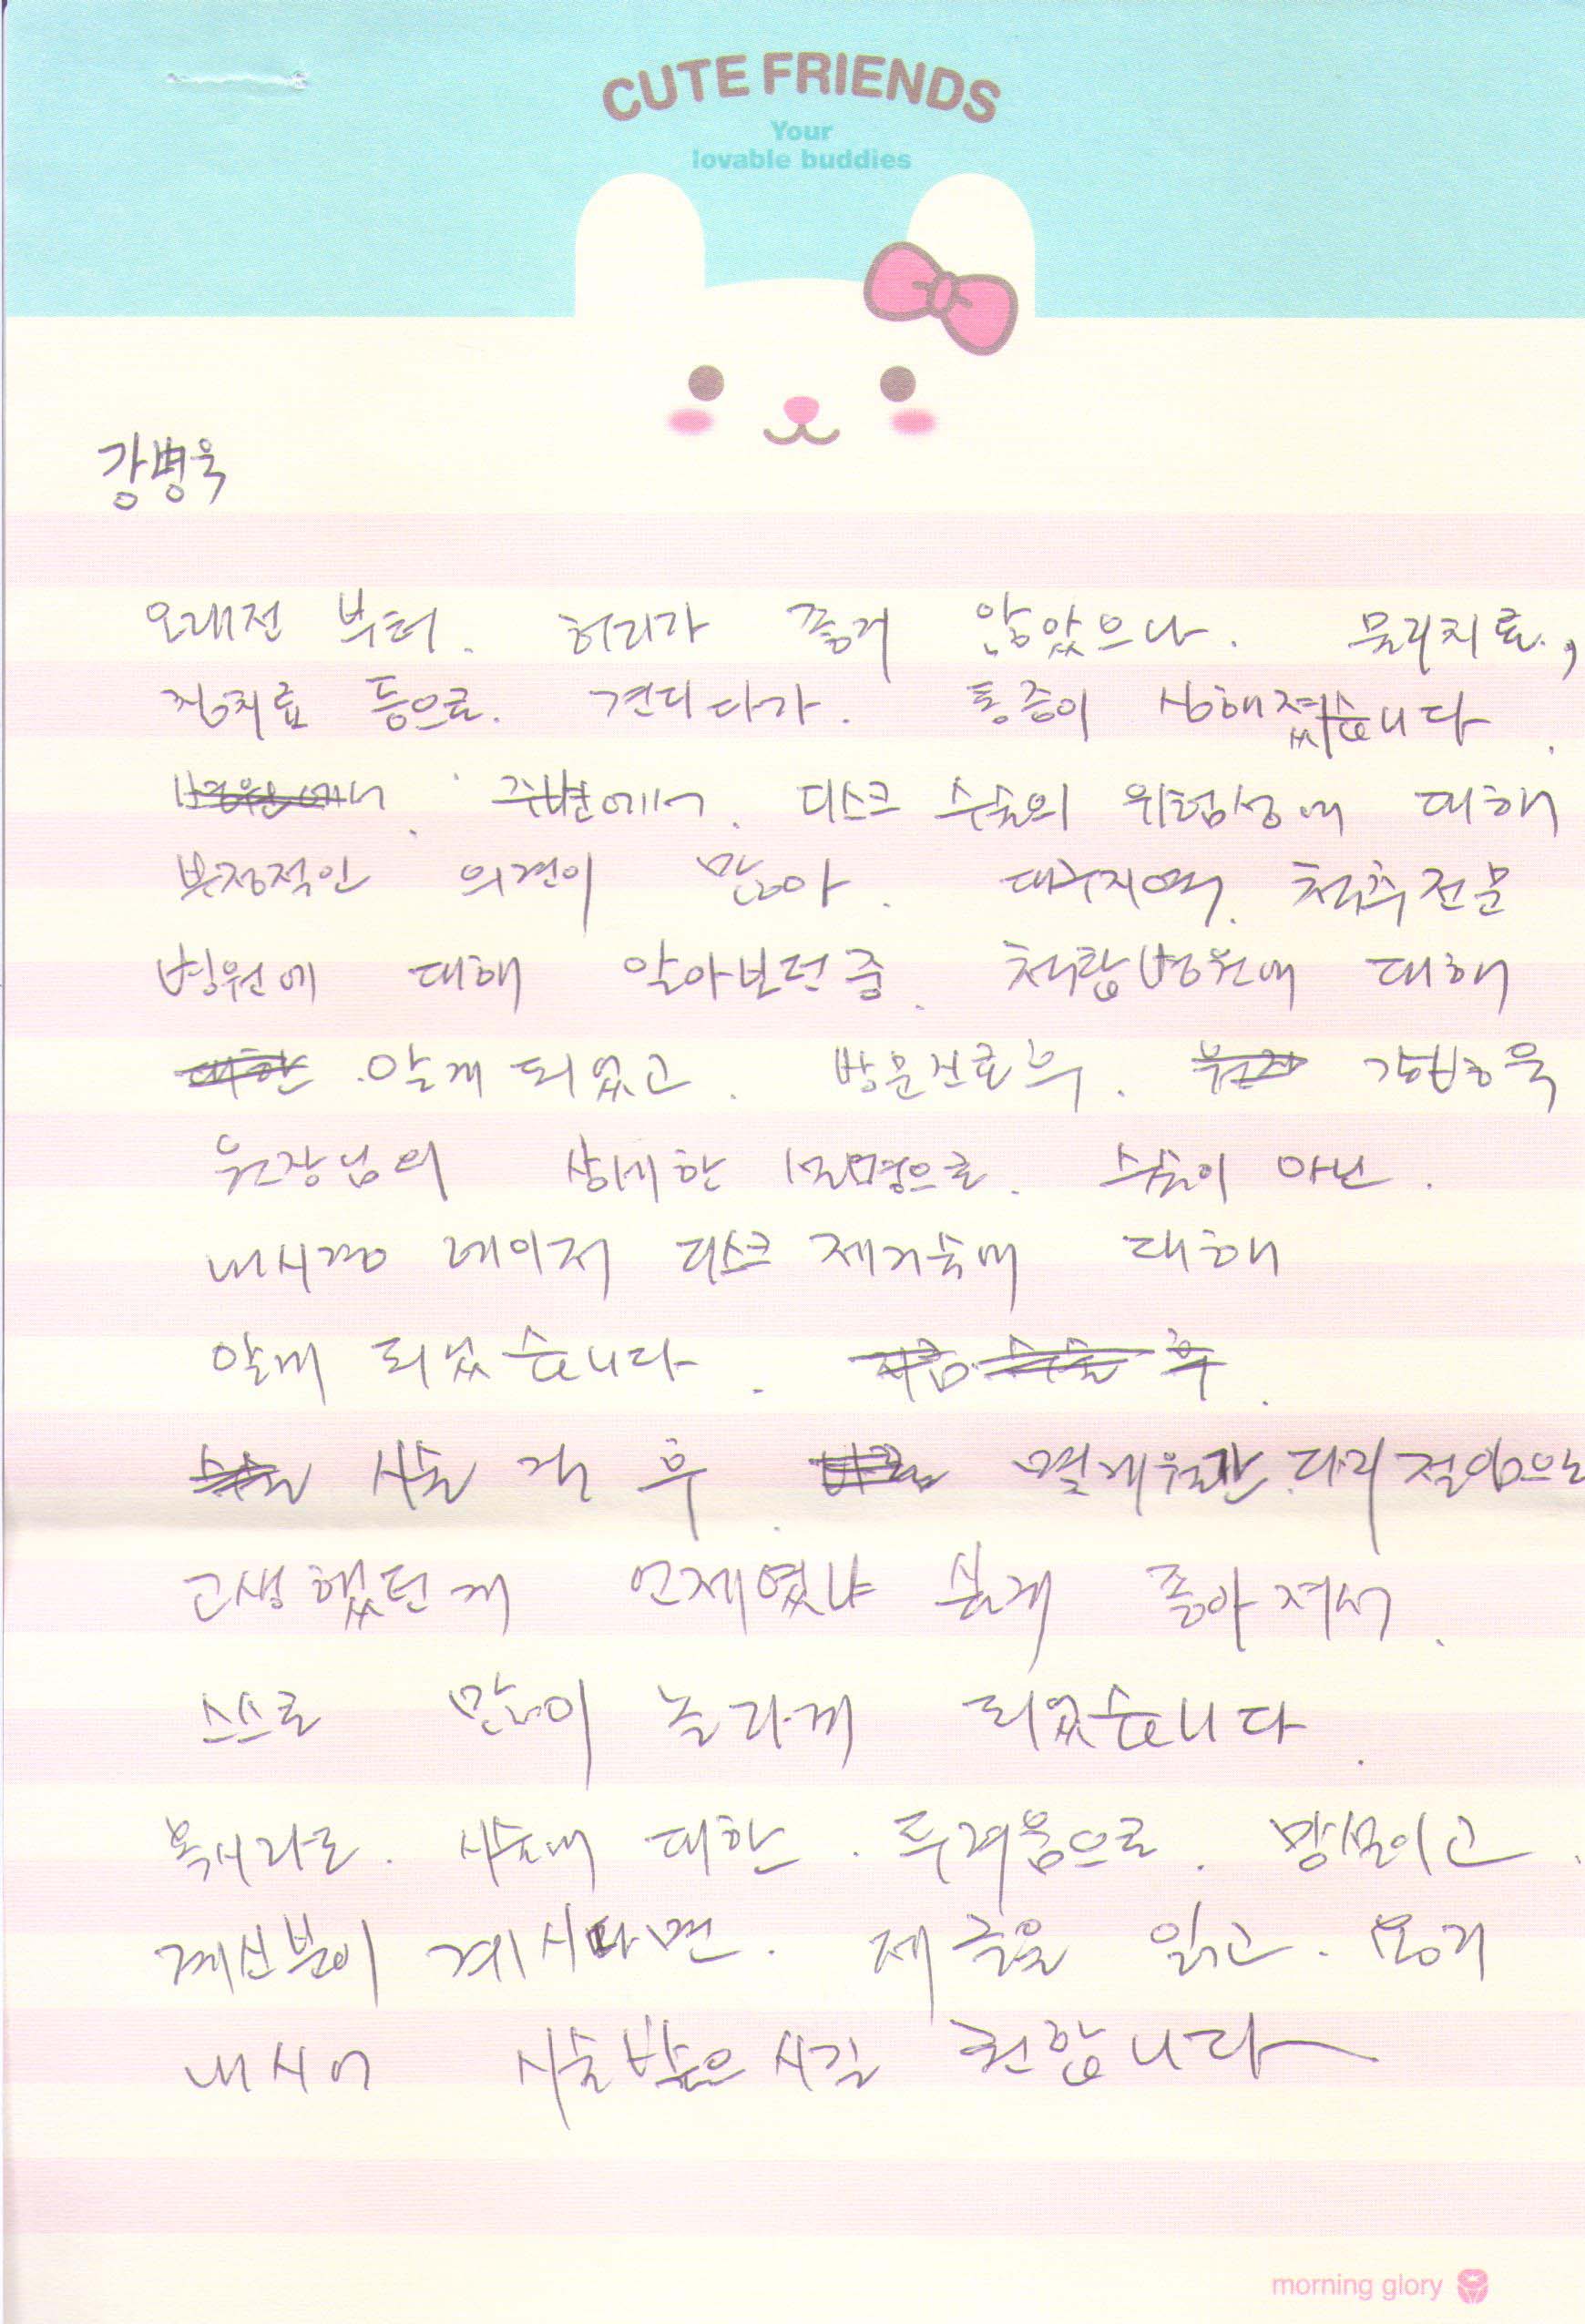 CUTE FRIENDS
Your
lovable buddies
강병욱
오래전 부터. 허리가 좋지 않았으나. 물리치료,
침치료 등으로. 견디다가. 통증이 심해졌습니다.
주변에서. 디스크 수술의 위험성에 대해
부정적인 의견이 많아. 대구지역. 척추전문
병원에 대해 알아보던중. 척탑병원에 대해
알게 되었고. 방문진료후. 강병욱
원장님의 상세한 설명으로. 수술이 아닌.
내시경 레이저 디스크 제거술에 대해
알게 되었습니다.
시술 직 후. 몇개월간 다리 절임으로
고생했던게 언제였냐 싶게 좋아져서.
스스로 많이 놀라게 되었습니다.
혹시라도. 시술에 대한. 두려움으로. 망설이고.
계신분이 계시다면. 제 글을 읽고. 용기
내시어 시술받으시길 권합니다
morning glory